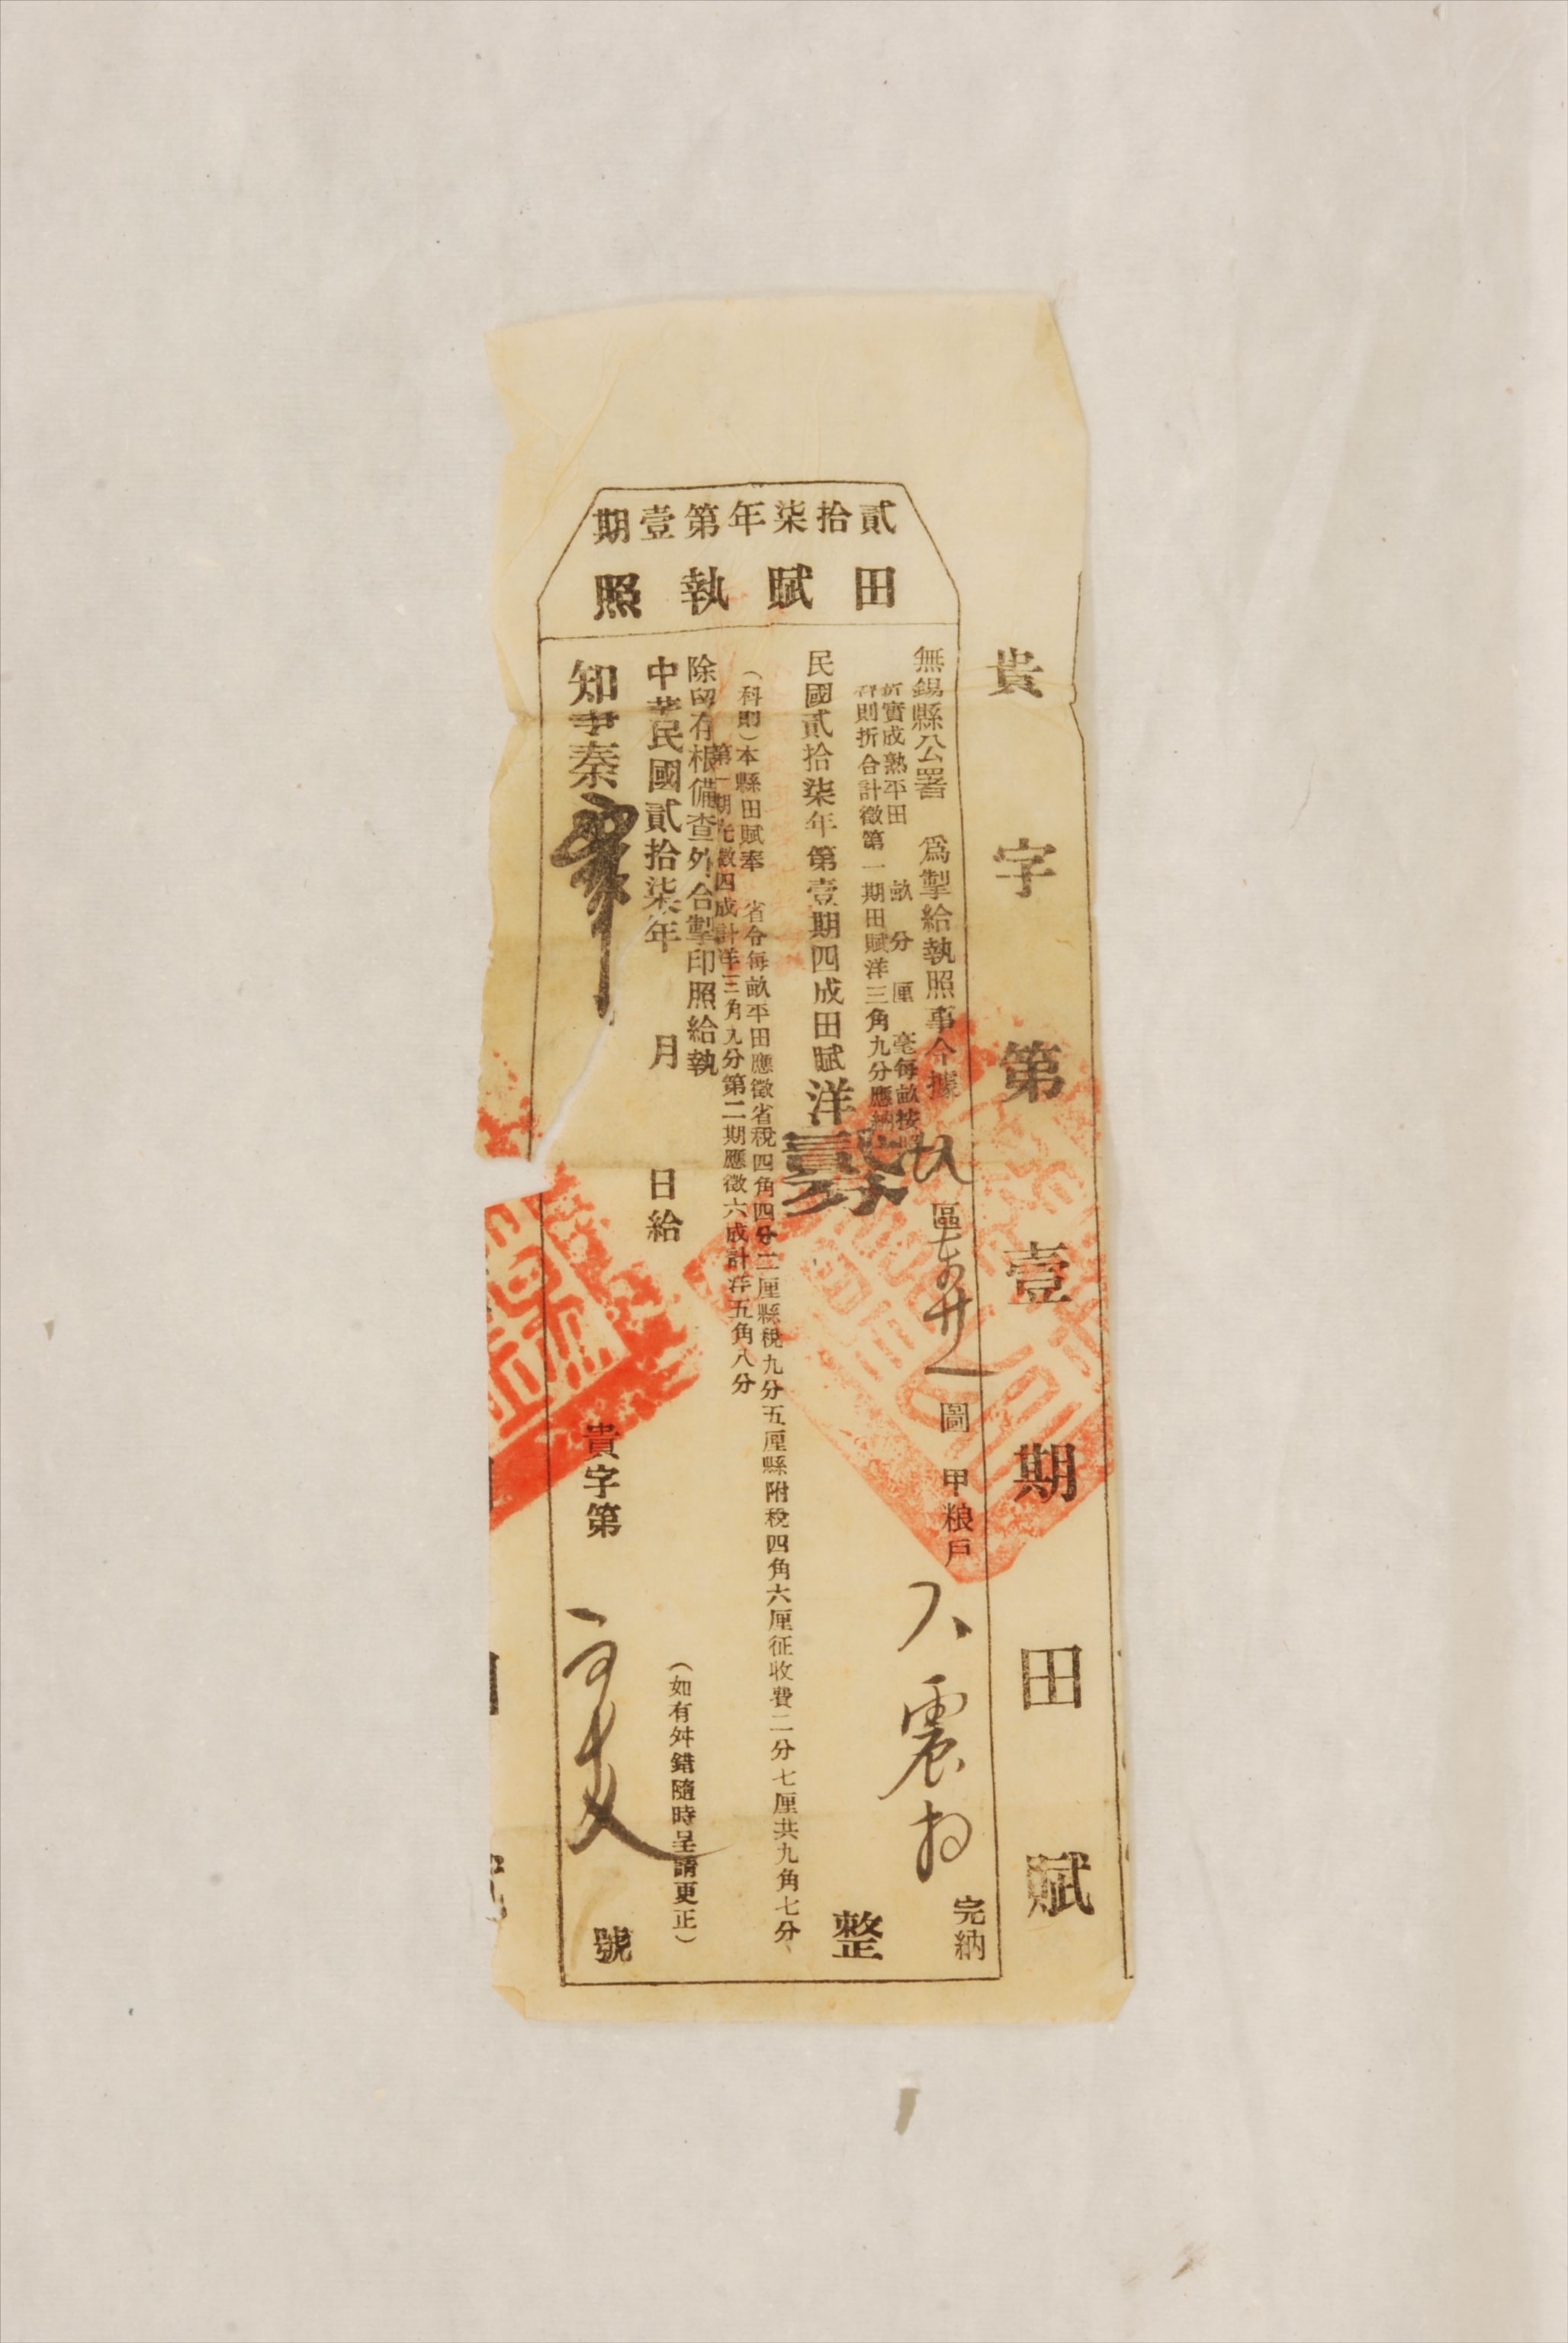 貴字第壹期田賦
貳拾柒年第壹期
田賦執照
無錫縣公署　爲掣給執照事令據　區　圖　甲粮戶　震　完納
折實成熟平田　畝　分　厘　毫每畝按照
科則折合計徵第一期田賦洋三角九分應納
民國貳拾柒年第壹期四成田賦洋　整
（科則）本縣田賦奉　省令每畝平田應徵省稅四角四分二厘縣稅九分五厘縣附稅四角六厘征收費二分七厘共九角七分
第一期先徵四成計洋三角九分第二期應徵六成計洋五角八分
除留有根備查外合掣印照給執
（如有舛錯隨時呈請更正）
中華民國貳拾柒年　月　日給
知事秦　貴字第　號